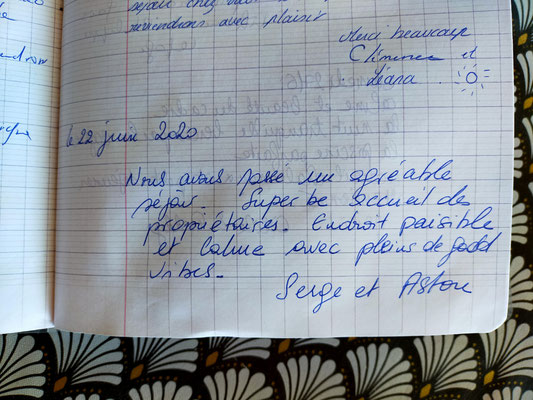 séjour chez
reviendrons avec plaisir
Merci beaucoup
et
Léana
le 22 juin 2020
Nous avons passé un agréable
séjour. Superbe accueil des
propriétaires. Endroit paisible
et Calme avec pleins de good
vibes.
Serge et Astou